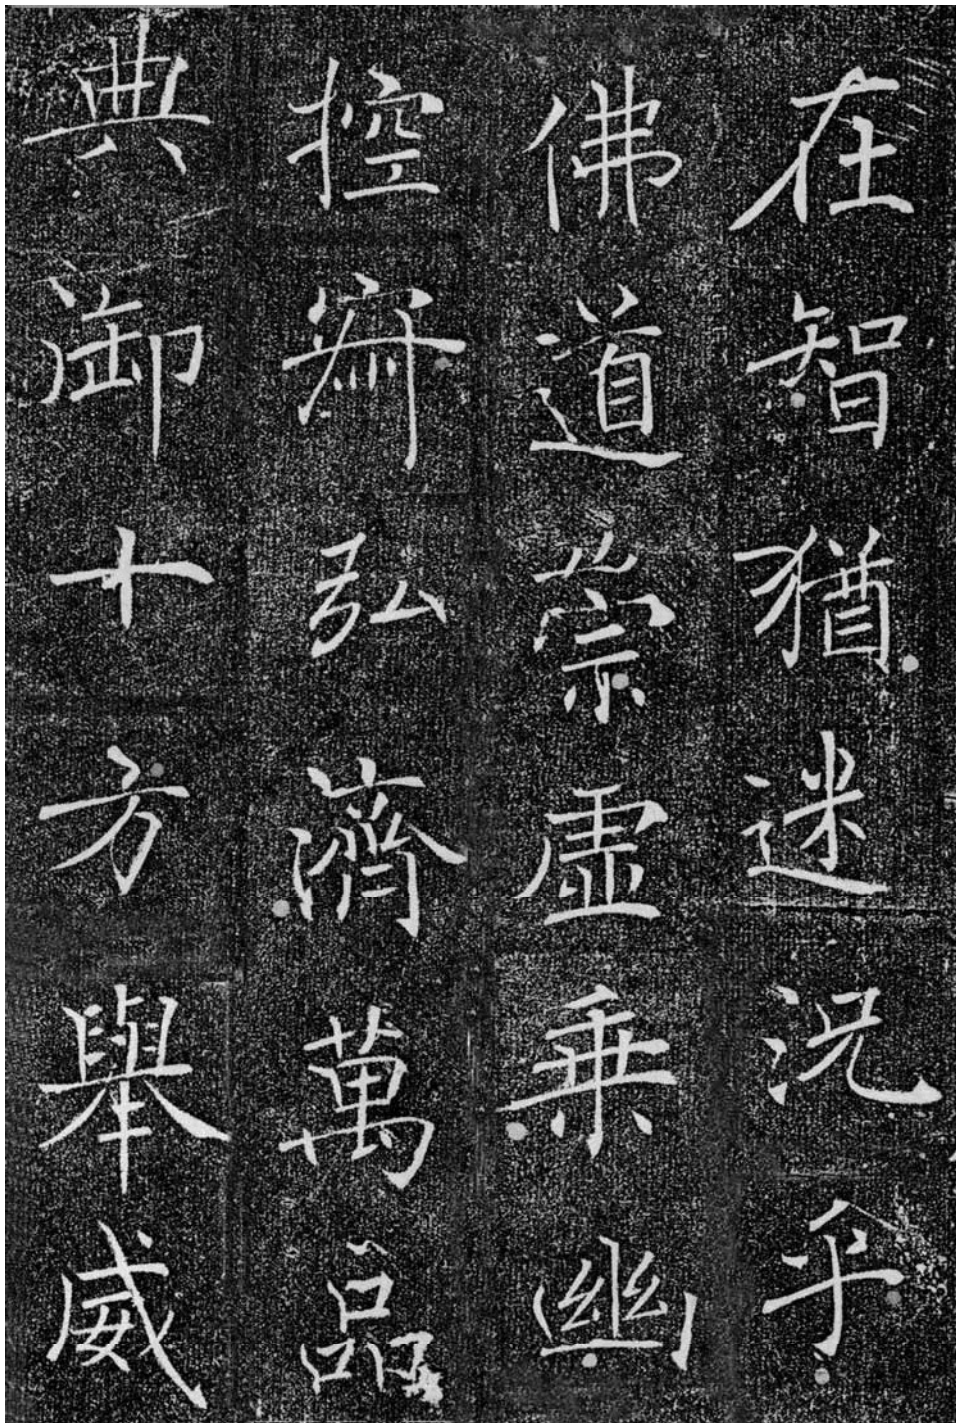 在智猶迷況乎
佛道崇虛乗幽
控寂弘濟萬品
典御十方舉威